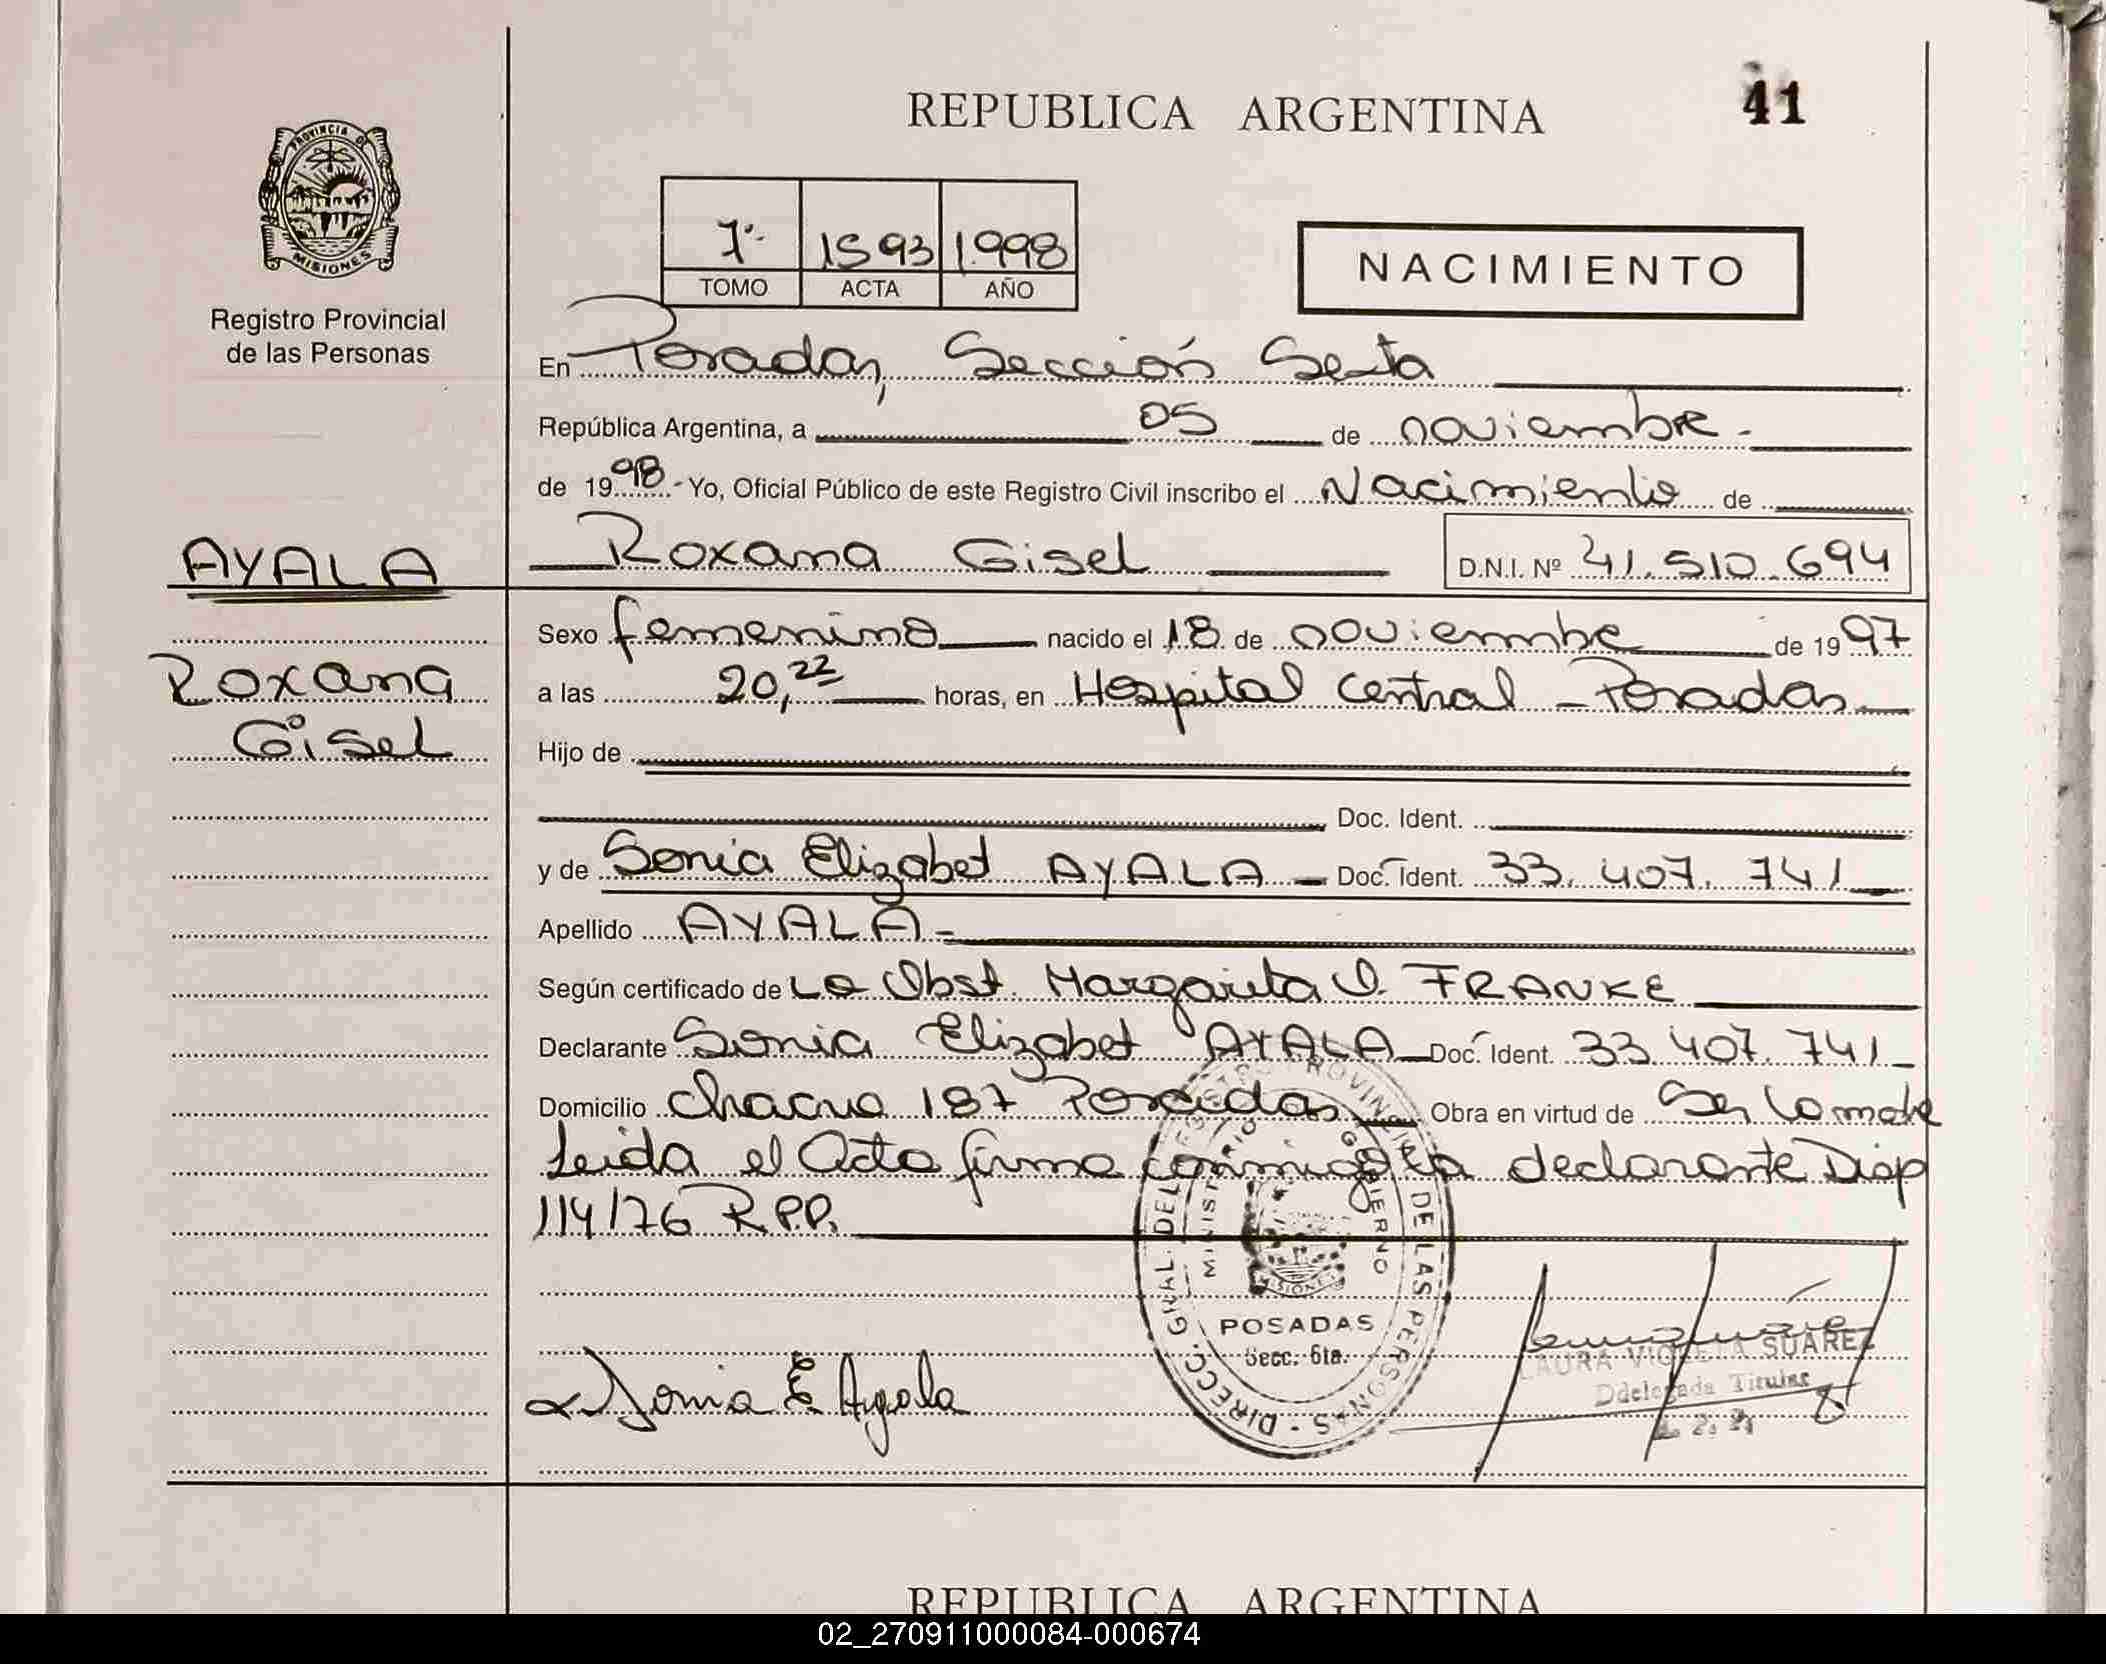 REPUBLICA ARGENTINA
41
PROVINCIA DE
MISIONES
Registro Provincial
de las Personas
7º 1593 1.998
TOMO ACTA AÑO
NACIMIENTO
En Posadas, Sección Sexta
República Argentina, a 05 de noviembre.-
de 1998.- Yo, Oficial Público de este Registro Civil inscribo el Nacimiento de
AYALA
Roxana Gisel D.N.I. Nº 41.510.694
Sexo femenino nacido el 18 de noviembre de 1997
Roxana
a las 20,22 horas, en Hospital Central - Posadas
Gisel
Hijo de
Doc. Ident.
y de Sonia Elizabet AYALA Doc. Ident. 33.407.741
Apellido AYALA-
Según certificado de La Obst. Margarita O. FRANKE
Declarante Sonia Elizabet AYALA Doc. Ident. 33.407.741
Domicilio Chacra 187 Posadas Obra en virtud de Ser la madre
Leida el Acta firma conmigo la declarante Disp
114/76 R.P.P.
DIRECC. GRAL. DEL REGISTRO PROVINCIAL DE LAS PERSONAS
MINISTERIO GOBIERNO
MISIONES
POSADAS
Secc. 6ta.
LAURA VIOLETA SUAREZ
Ddelegada Titular
Sonia E. Ayala
REPUBLICA ARGENTINA
02_270911000084-000674